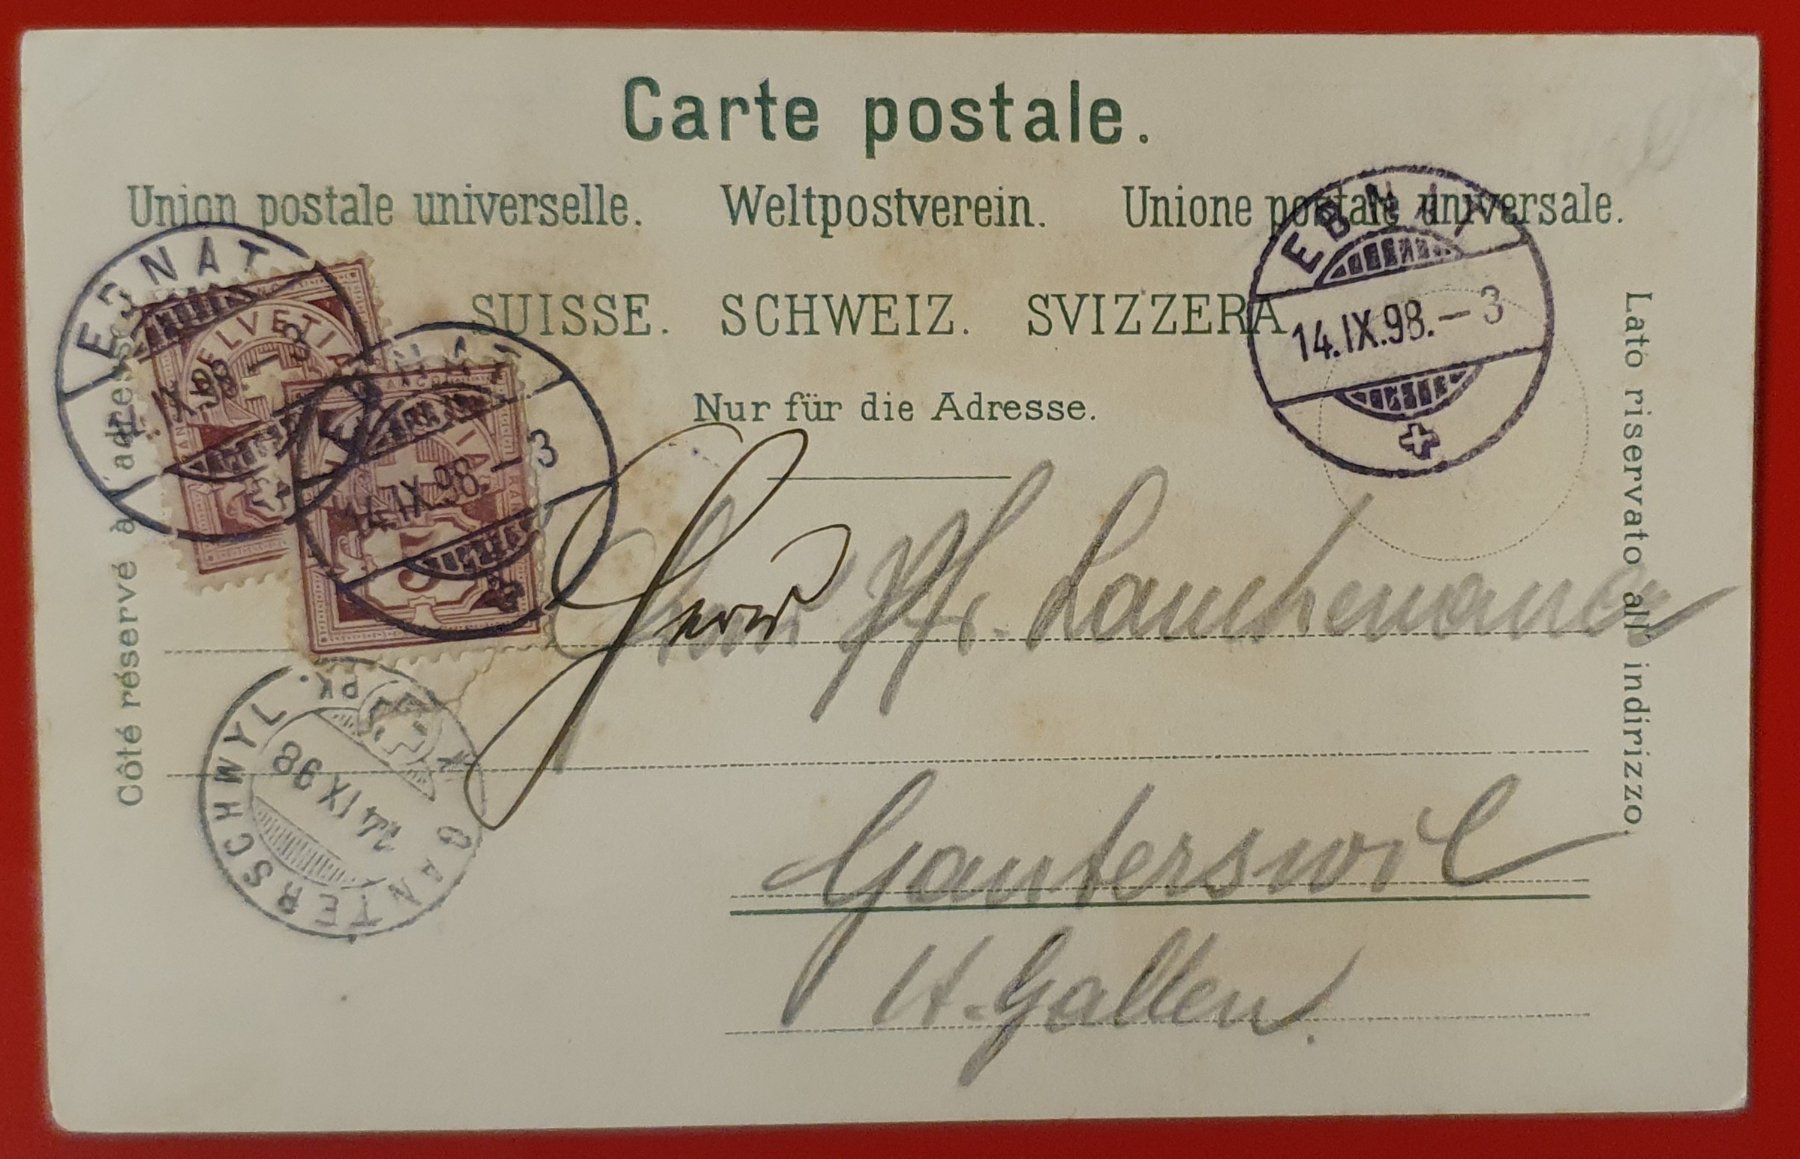 Carte postale.
Union postale universelle. Weltpostverein. Unione postale universale.
SUISSE. SCHWEIZ. SVIZZERA
Nur für die Adresse.
Côté réservé à l'adresse.
Lato riservato all' indirizzo.
EBNAT
IX.98.-3
HELVETIA
EBNAT
14.IX.98.-3
5
EBNAT
14.IX.98.-3
GANTERSCHWYL.
14 IX 98
Herrn
Herrn Pfr.
Ganterswil
St. Gallen.